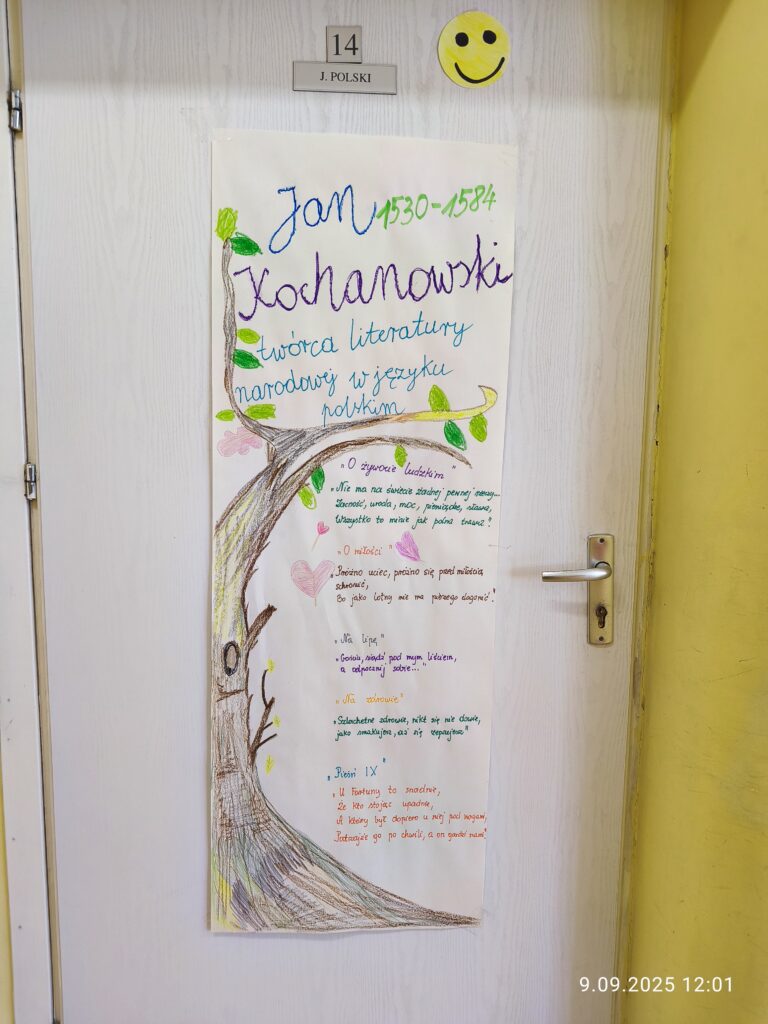 14
J. POLSKI
Jan 1530-1584
Kochanowski
twórca literatury
narodowej w języku
polskim
"O żywocie ludzkim"
"Nie ma na świecie żadnej pewnej rzeczy...
Zacność, uroda, moc, pieniądze, sława,
Wszystko to minie jak polna trawa"
"O miłości"
"Próżno uciec, próżno się przed miłością
schronić,
Bo jako lotny nie ma pieszego dogonić."
"Na lipę"
"Gościu, siądź pod mym liściem,
a odpocznij sobie..."
"Na zdrowie"
"Szlachetne zdrowie, nikt się nie dowie,
jako smakujesz, aż się zepsujesz"
"Pieśń IX"
"U Fortuny to snadnie,
Że kto stojąc upadnie,
A który był dopiero u niej pod nogami,
Patrzajże go po chwili, a on gardzi nami"
9.09.2025 12:01